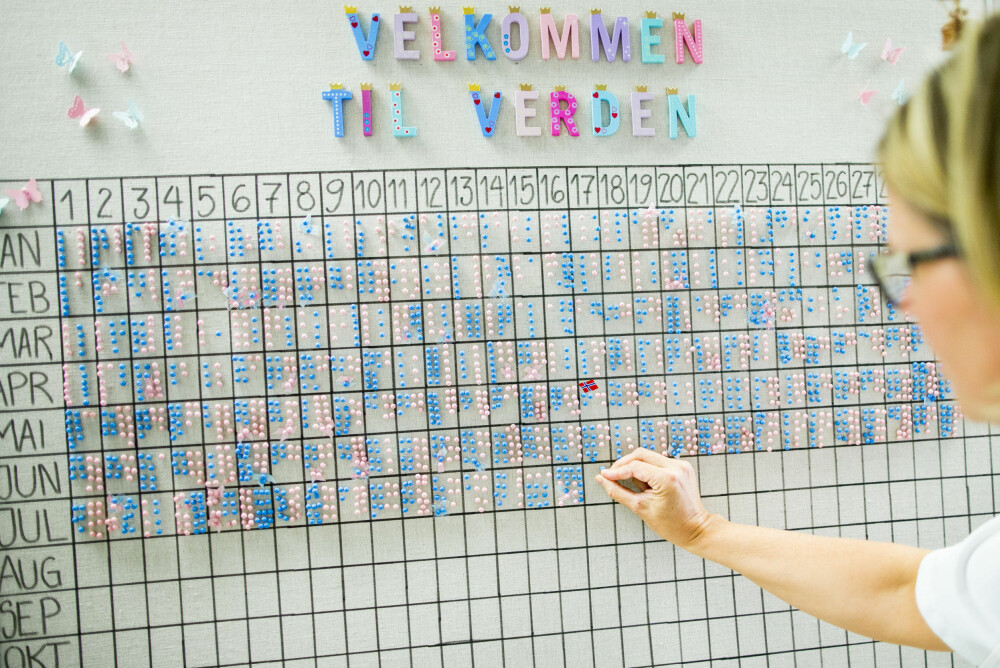 VELKOMMEN
TIL VERDEN
1 2 3 4 5 6 7 8 9 10 11 12 13 14 15 16 17 18 19 20 21 22 23 24 25 26 27
AN
FEB
MAR
APR
MAI
JUN
JUL
AUG
SEP
OKT